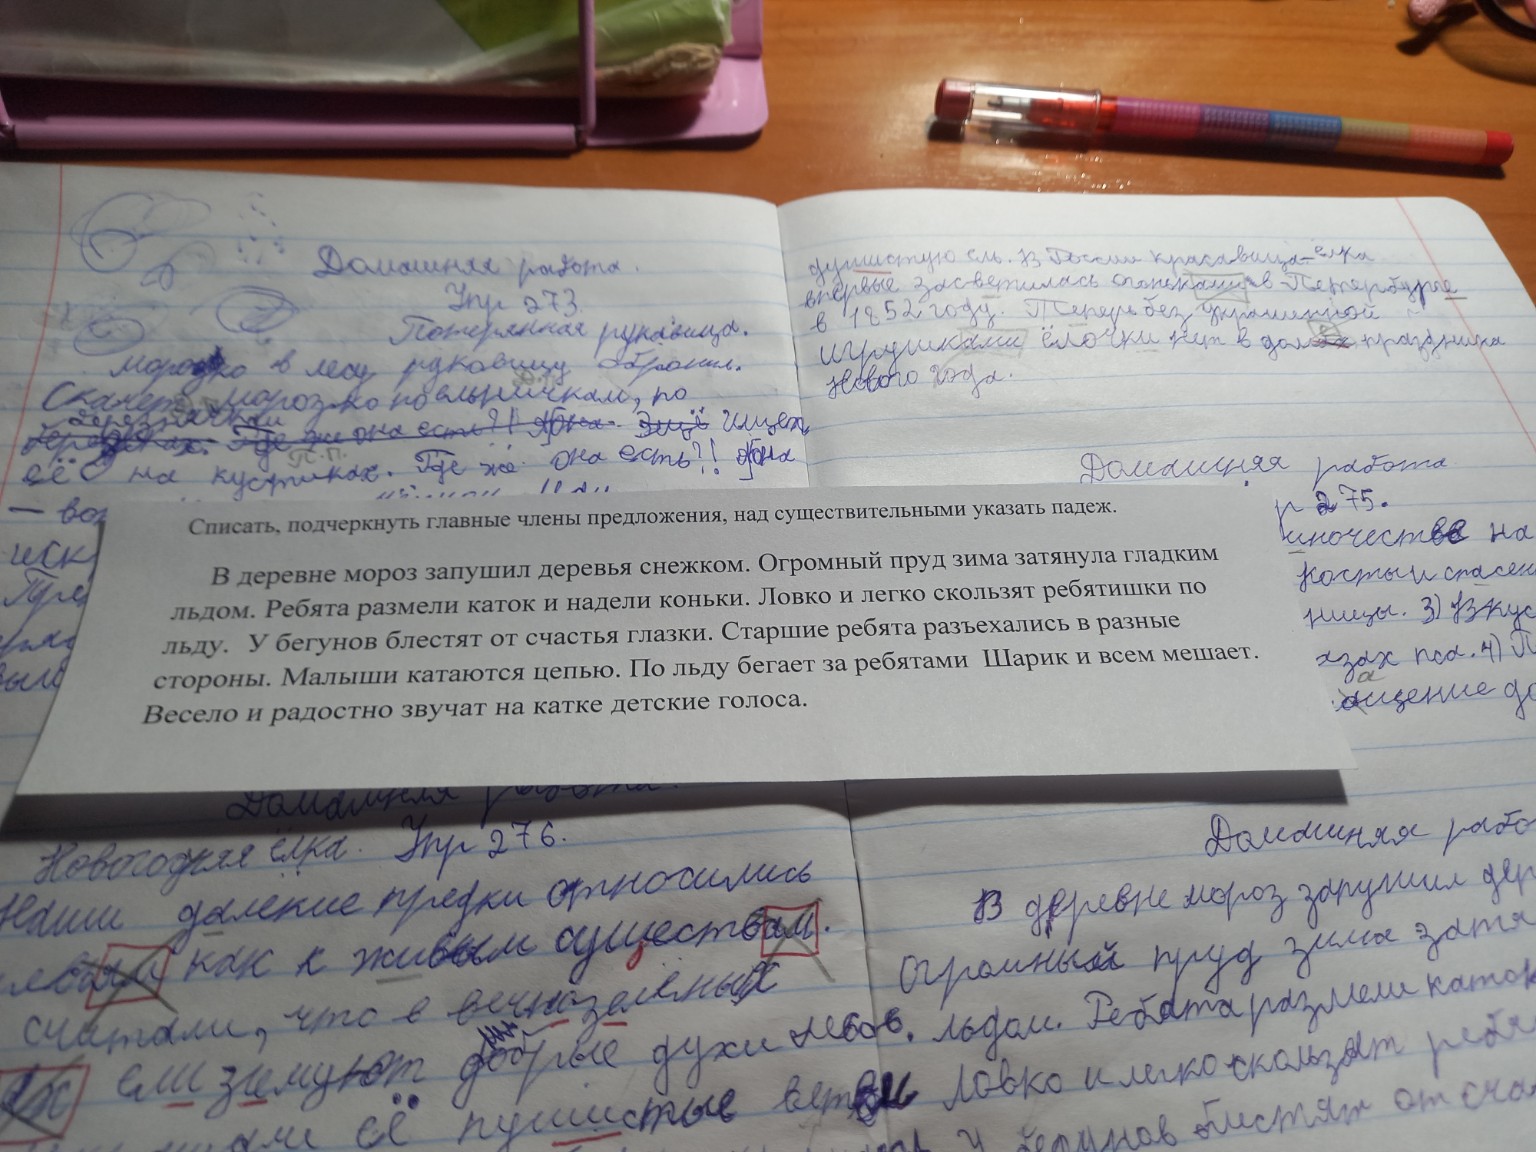 Домашняя работа.
Упр 273.
Потерянная рукавица.
Морозко в лесу рукавицу обронил.
морозко по ельничкам, по
березничкам
Где же она есть?! Ещё ищет
П.П.
её на кустиках. Где же она есть?! она
— вот
иск
душистую ель. В России красавица-ёлка
впервые засветилась огоньками в Петербурге
в 1852 году. Теперь без украшенной
игрушками ёлочки нет в праздника
Нового года.
Домашняя работа
р 275.
иночестве на
кость и спасен
ницы. 3) Вкус
азах пса. 4) П
ищение до
Списать, подчеркнуть главные члены предложения, над существительными указать падеж.
В деревне мороз запушил деревья снежком. Огромный пруд зима затянула гладким
льдом. Ребята размели каток и надели коньки. Ловко и легко скользят ребятишки по
льду. У бегунов блестят от счастья глазки. Старшие ребята разъехались в разные
стороны. Малыши катаются цепью. По льду бегает за ребятами Шарик и всем мешает.
Весело и радостно звучат на катке детские голоса.
Домашняя работа.
Новогодняя ёлка. Упр 276.
Наши далёкие предки относились
как к живым существам.
считали, что в вечнозелёных
ях ели зимуют добрые духи лесов.
её пушистые ветви
Домашняя рабо
В деревне мороз запушил дер
Огромный пруд зима затя
льдом. Ребята размели каток
Ловко и легко скользят ребя
У бегунов блистят от счас